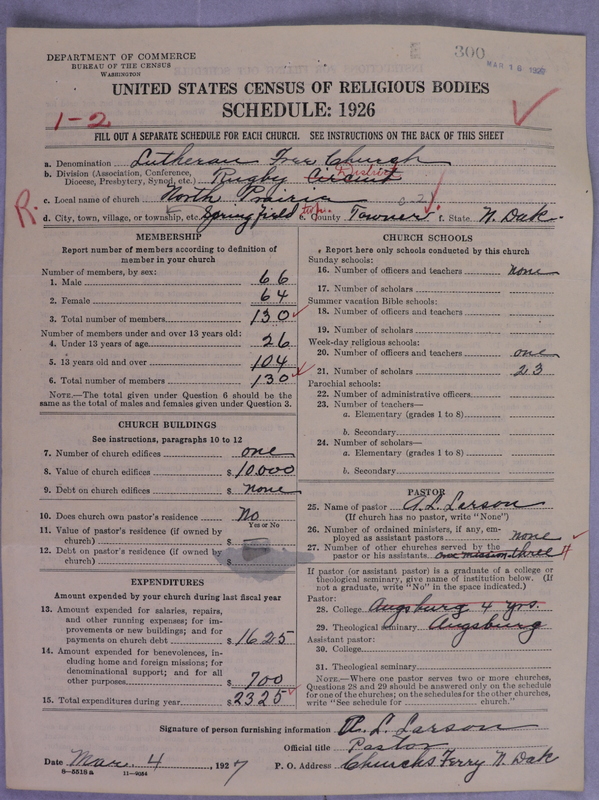 DEPARTMENT OF COMMERCE
BUREAU OF THE CENSUS
WASHINGTON
300
MAR 16 1927
UNITED STATES CENSUS OF RELIGIOUS BODIES
SCHEDULE: 1926
1-2
FILL OUT A SEPARATE SCHEDULE FOR EACH CHURCH. SEE INSTRUCTIONS ON THE BACK OF THIS SHEET
a. Denomination Lutheran Free Church
b. Division (Association, Conference, Diocese, Presbytery, Synod, etc.) Rugby Circuit District
c. Local name of church North Prairie
R.
d. City, town, village, or township, etc. Springfield twn. e. County Towner f. State N. Dak.
MEMBERSHIP
Report number of members according to definition of
member in your church
Number of members, by sex:
1. Male 66
2. Female 64
3. Total number of members 130
Number of members under and over 13 years old:
4. Under 13 years of age 26
5. 13 years old and over 104
6. Total number of members 130
NOTE.—The total given under Question 6 should be the
same as the total of males and females given under Question 3.
CHURCH BUILDINGS
See instructions, paragraphs 10 to 12
7. Number of church edifices one
8. Value of church edifices $10,000
9. Debt on church edifices $ none
10. Does church own pastor's residence No
Yes or No
11. Value of pastor's residence (if owned by
church) $
12. Debt on pastor's residence (if owned by
church) $
EXPENDITURES
Amount expended by your church during last fiscal year
13. Amount expended for salaries, repairs,
and other running expenses; for im-
provements or new buildings; and for
payments on church debt $1625
14. Amount expended for benevolences, in-
cluding home and foreign missions; for
denominational support; and for all
other purposes $700
15. Total expenditures during year $2325
CHURCH SCHOOLS
Report here only schools conducted by this church
Sunday schools:
16. Number of officers and teachers none
17. Number of scholars
Summer vacation Bible schools:
18. Number of officers and teachers
19. Number of scholars
Week-day religious schools:
20. Number of officers and teachers one
21. Number of scholars 23
Parochial schools:
22. Number of administrative officers
23. Number of teachers—
a. Elementary (grades 1 to 8)
b. Secondary
24. Number of scholars—
a. Elementary (grades 1 to 8)
b. Secondary
PASTOR
25. Name of pastor A. L. Larson
(If church has no pastor, write "None")
26. Number of ordained ministers, if any, em-
ployed as assistant pastors none
27. Number of other churches served by the
pastor or his assistants three
If pastor (or assistant pastor) is a graduate of a college or
theological seminary, give name of institution below. (If
not a graduate, write "No" in the space indicated.)
Pastor:
28. College Augsburg 4 yrs.
29. Theological seminary Augsburg
Assistant pastor:
30. College
31. Theological seminary
NOTE.—Where one pastor serves two or more churches,
Questions 28 and 29 should be answered only on the schedule
for one of the churches; on the schedules for the other churches,
write "See schedule for church."
Signature of person furnishing information A. L. Larson
Official title Pastor
Date Mar. 4, 1927 P. O. Address Churchs Ferry N. Dak
8-5518 a 11-9054